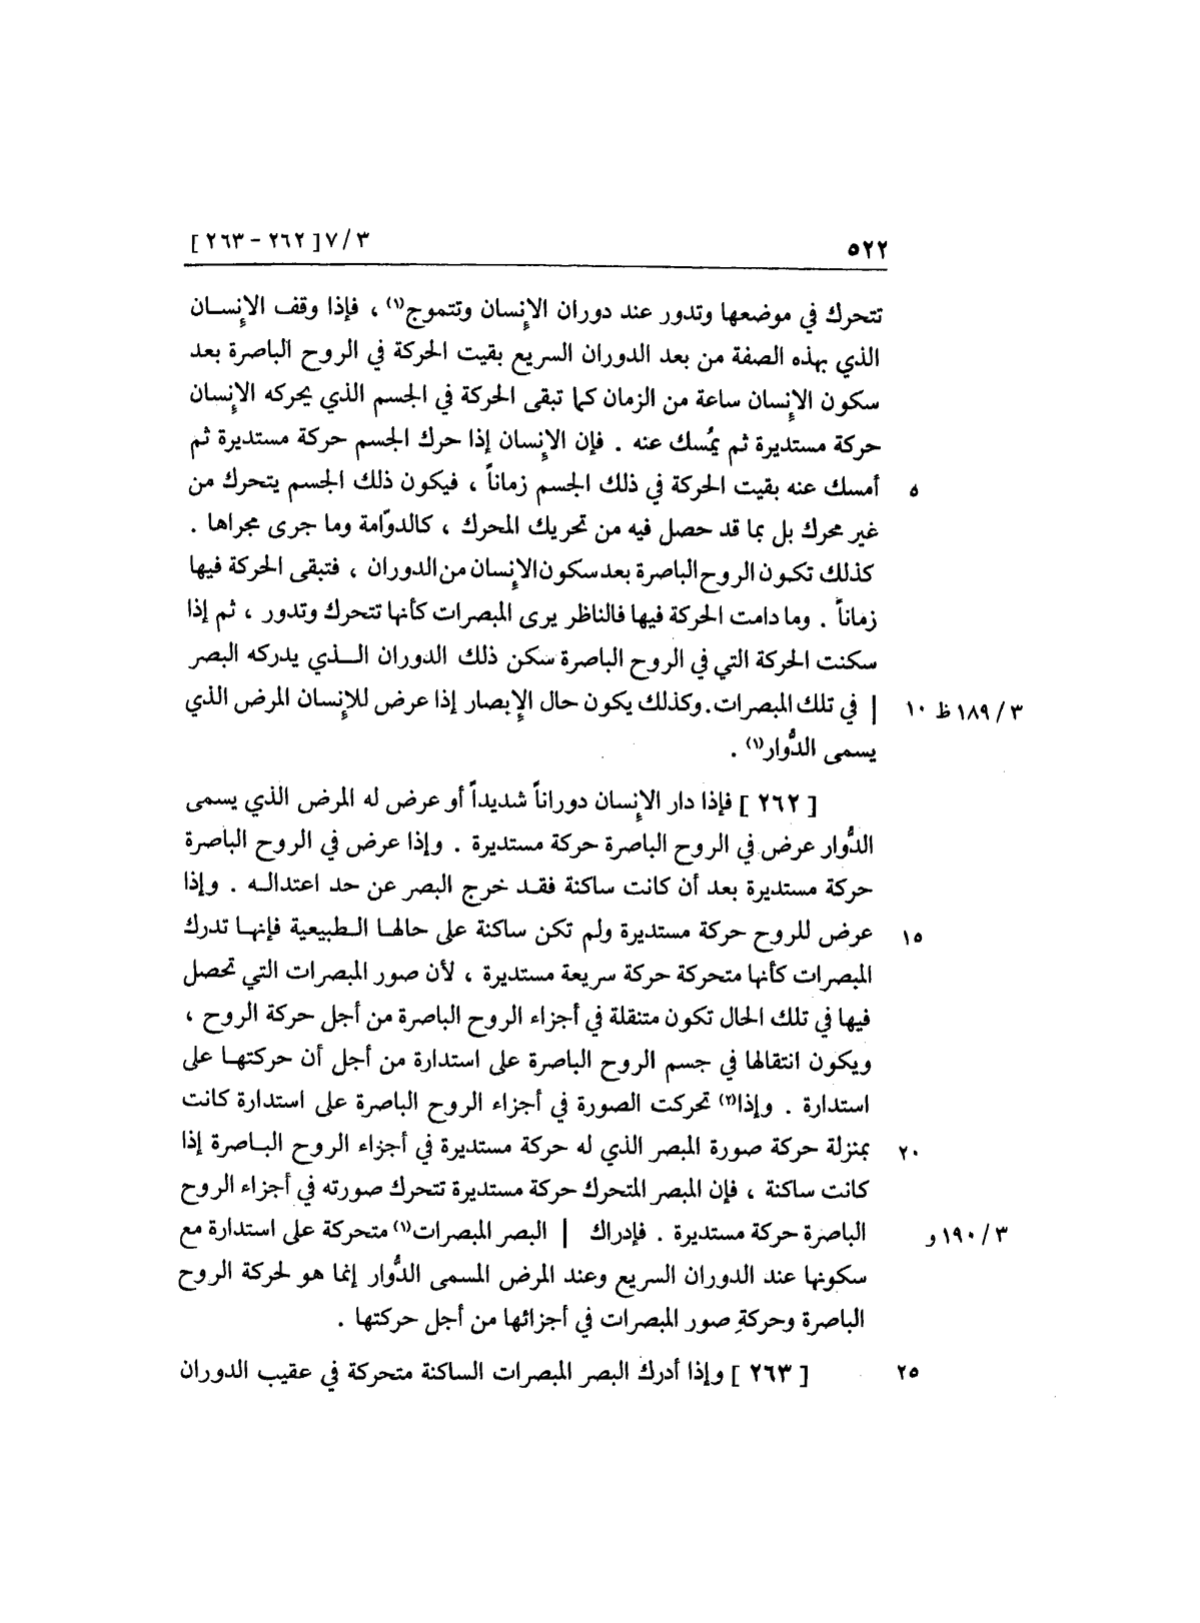 ٥٢٢ ٧/٣ [ ٢٦٢ - ٢٦٣ ]
تتحرك في موضعها وتدور عند دوران الإنسان وتتموج(١) ، فإذا وقف الإنسان
الذي بهذه الصفة من بعد الدوران السريع بقيت الحركة في الروح الباصرة بعد
سكون الإنسان ساعة من الزمان كما تبقى الحركة في الجسم الذي يحركه الإنسان
حركة مستديرة ثم يمُسك عنه . فإن الإنسان إذا حرك الجسم حركة مستديرة ثم
٥ أمسك عنه بقيت الحركة في ذلك الجسم زماناً ، فيكون ذلك الجسم يتحرك من
غير محرك بل بما قد حصل فيه من تحريك المحرك ، كالدوّامة وما جرى مجراها .
كذلك تكون الروح الباصرة بعد سكون الإنسان من الدوران ، فتبقى الحركة فيها
زماناً . وما دامت الحركة فيها فالناظر يرى المبصرات كأنها تتحرك وتدور ، ثم إذا
سكنت الحركة التي في الروح الباصرة سكن ذلك الدوران الذي يدركه البصر
٣/ ١٨٩ ظ ١٠ | في تلك المبصرات . وكذلك يكون حال الإبصار إذا عرض للإنسان المرض الذي
يسمى الدُّوار(١) .
[ ٢٦٢ ] فإذا دار الإنسان دوراناً شديداً أو عرض له المرض الذي يسمى
الدُّوار عرض في الروح الباصرة حركة مستديرة . وإذا عرض في الروح الباصرة
حركة مستديرة بعد أن كانت ساكنة فقد خرج البصر عن حد اعتداله . وإذا
١٥ عرض للروح حركة مستديرة ولم تكن ساكنة على حالها الطبيعية فإنها تدرك
المبصرات كأنها متحركة حركة سريعة مستديرة ، لأن صور المبصرات التي تحصل
فيها في تلك الحال تكون متنقلة في أجزاء الروح الباصرة من أجل حركة الروح ،
ويكون انتقالها في جسم الروح الباصرة على استدارة من أجل أن حركتها على
استدارة . وإذا(٢) تحركت الصورة في أجزاء الروح الباصرة على استدارة كانت
٢٠ بمنزلة حركة صورة المبصر الذي له حركة مستديرة في أجزاء الروح الباصرة إذا
كانت ساكنة ، فإن المبصر المتحرك حركة مستديرة تتحرك صورته في أجزاء الروح
٣/ ١٩٠ و الباصرة حركة مستديرة . فإدراك | البصر المبصرات(١) متحركة على استدارة مع
سكونها عند الدوران السريع وعند المرض المسمى الدُّوار إنما هو لحركة الروح
الباصرة وحركةِ صور المبصرات في أجزائها من أجل حركتها .
٢٥ [ ٢٦٣ ] وإذا أدرك البصر المبصرات الساكنة متحركة في عقيب الدوران